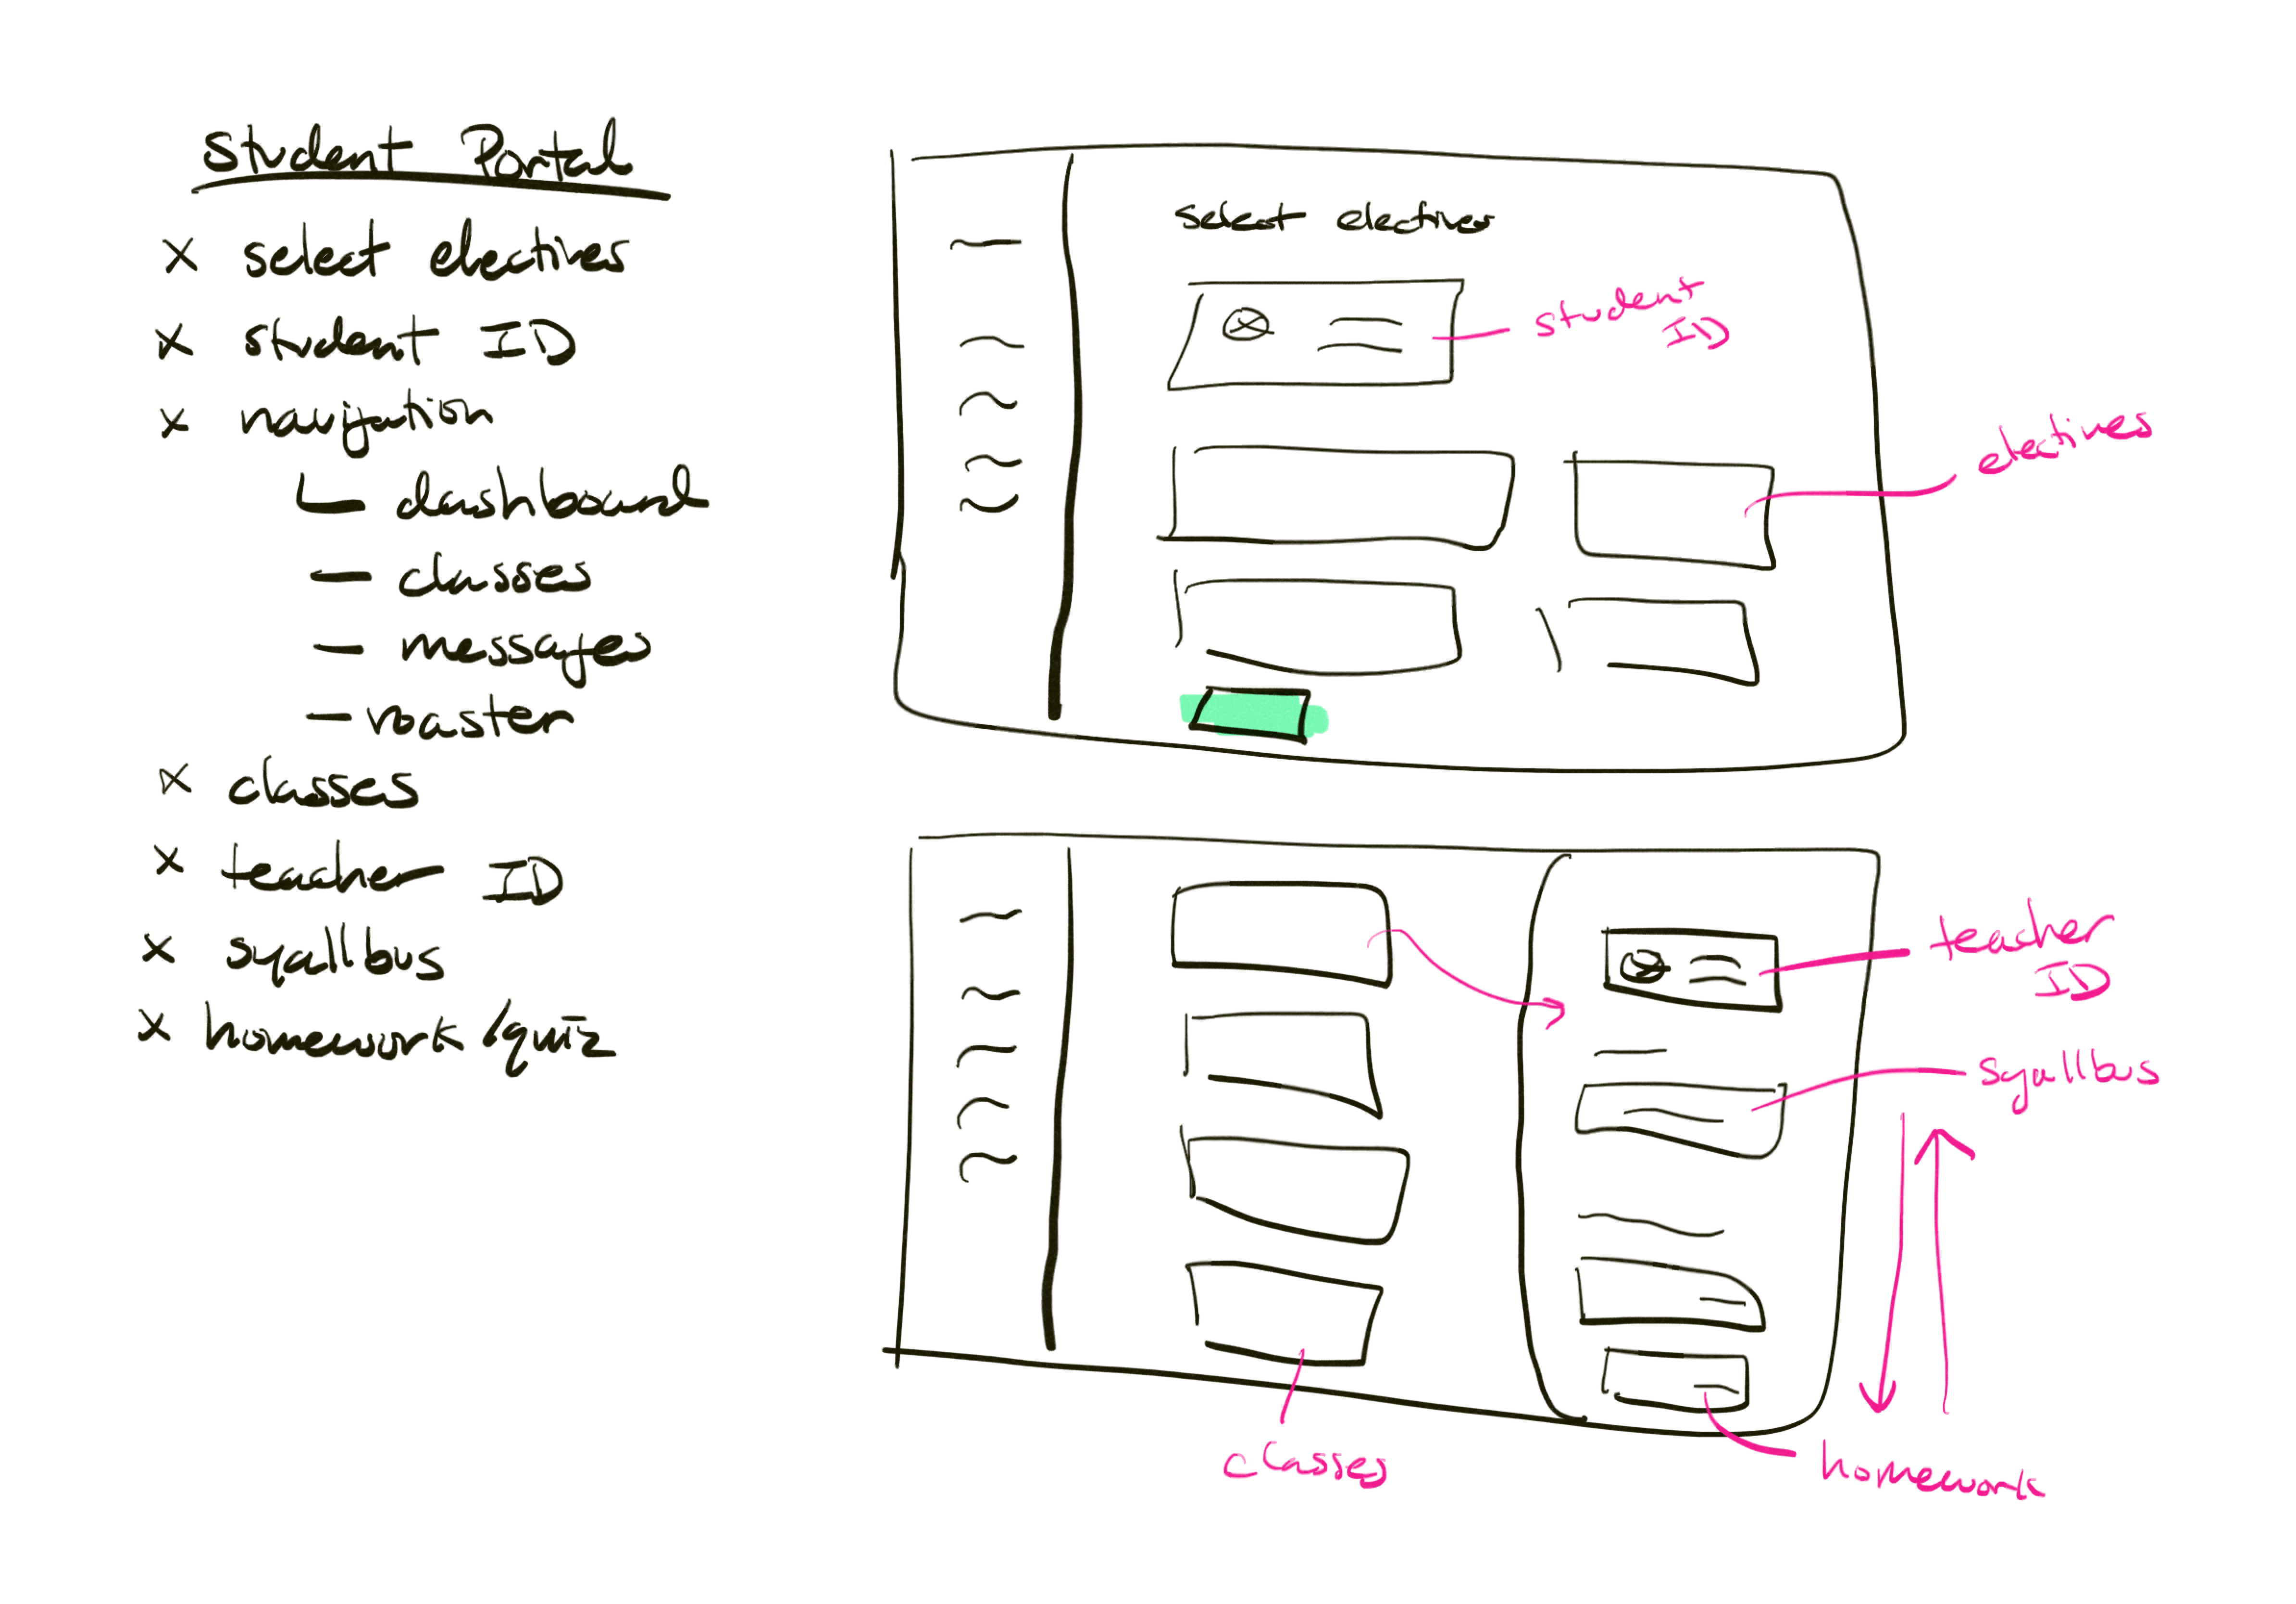 Student Portal
x select electives
x student ID
x navigation
dashboard
- classes
- messages
- roaster
x classes
x teacher ID
x syallbus
x homework/quiz
select electives
student
ID
electives
teacher
ID
syallbus
classes
homework